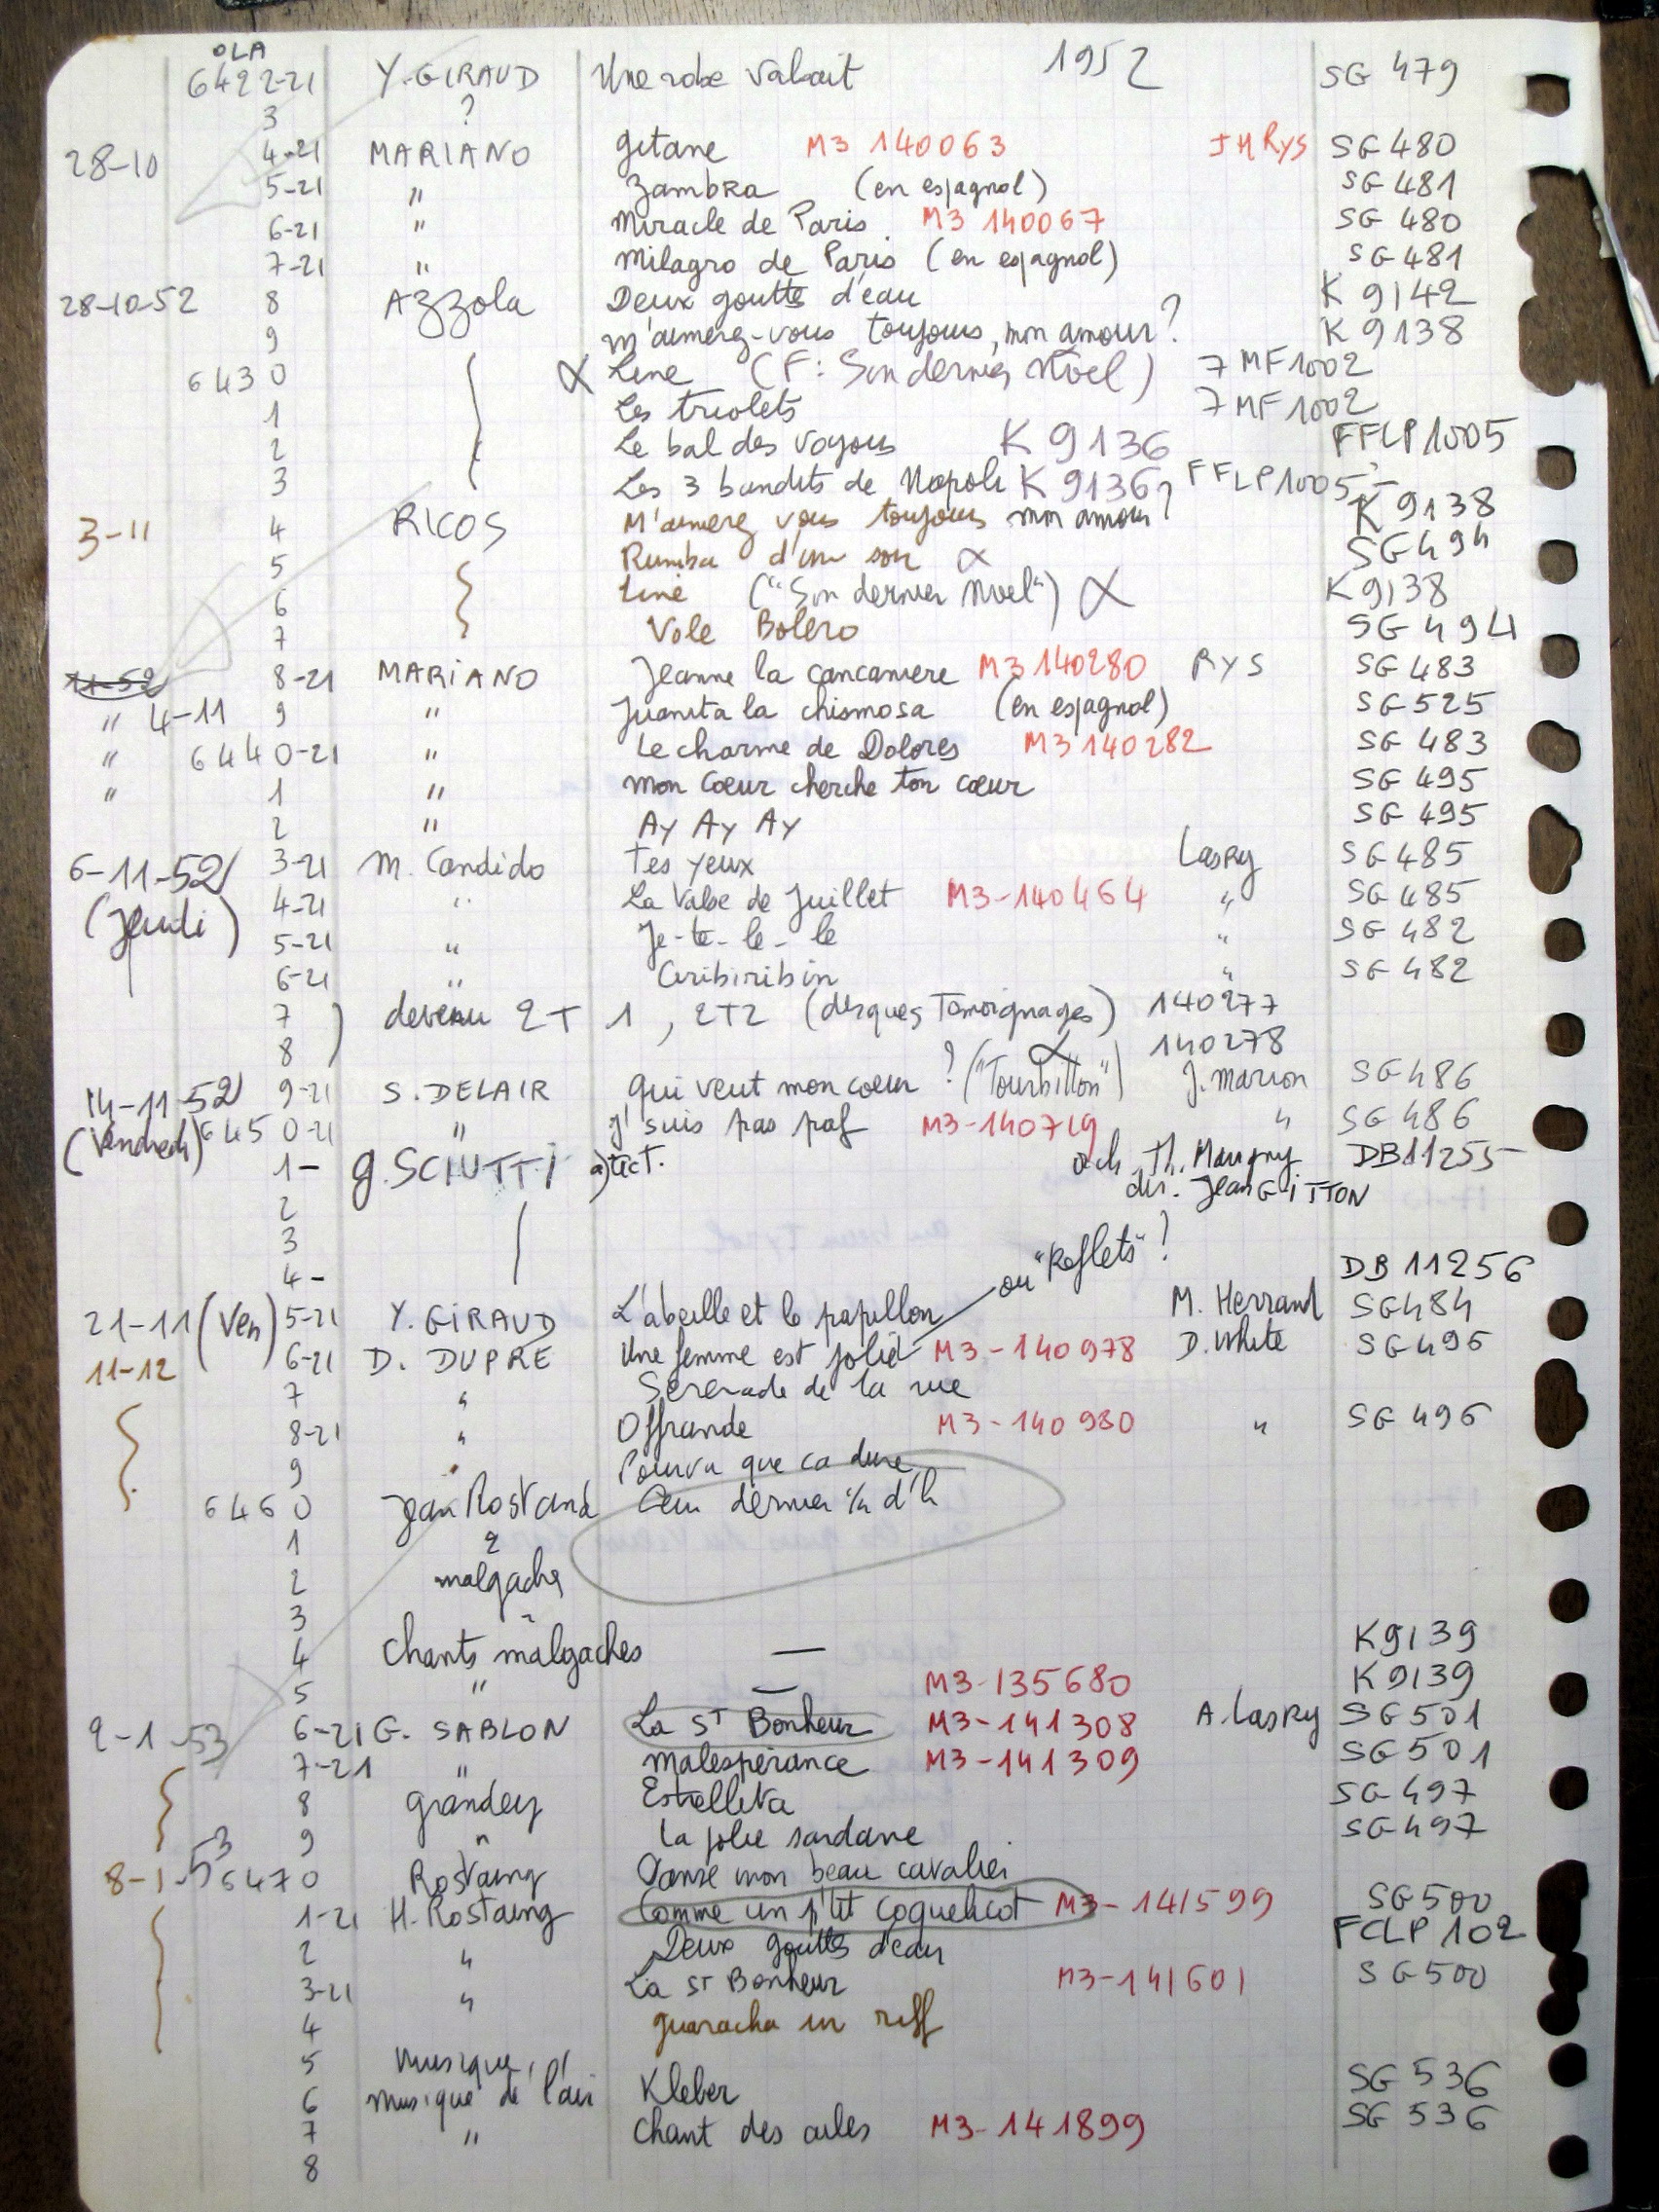 OLA 1952
6422-21 Y. GIRAUD Une robe valsait SG 479
3 ?
28-10 4-21 MARIANO gitane M3 140063 J H Rys SG 480
5-21 " Zambra (en espagnol) SG 481
6-21 " Miracle de Paris M3 140067 SG 480
7-21 " Milagro de Paris (en espagnol) SG 481
28-10-52 8 Azzola Deux gouttes d'eau K 9142
9 m'aimerez-vous toujours, mon amour? K 9138
6430 Line (F: Son dernier Noël) 7 MF 1002
1 Les triolets 7 MF 1002
2 Le bal des voyous K 9136 FFLP 1005
3 Les 3 bandits de Napoli K 9136? FFLP 1005
3-11 4 RICOS M'aimerez vous toujours mon amour? K 9138
5 Rumba d'un soir SG 494
6 Line ("Son dernier Noel") K 9138
7 Vole Bolero SG 494
11-52 8-21 MARIANO Jeanne la cancaniere M3 140280 RYS SG 483
" 4-11 9 " Juanita la chismosa (en espagnol) SG 525
" 6440-21 " Le charme de Dolores M3 140282 SG 483
" 1 " mon coeur cherche ton coeur SG 495
2 " Ay Ay Ay SG 495
6-11-52 3-21 M. Candido Tes yeux Lasry SG 485
(Jeudi) 4-21 " La Valse de Juillet M3-140464 " SG 485
5-21 " Je-te-le-le " SG 482
6-21 " Ciribiribin " SG 482
7 ) devenu 2T 1, 2T2 (disques Temoignages) 140277
8 140278
14-11-52 9-21 S. DELAIR qui veut mon coeur? ("Tourbillon") J. Marion SG 486
(Vendredi) 6450-21 " j'suis pas paf M3-140719 " SG 486
1- g. SCIUTTI a) tact. och Th. Marigny DB 11255
dir. Jean GITTON
2
3
4- ou "Reflets"? DB 11256
21-11 (Ven) 5-21 Y. GIRAUD L'abeille et le papillon M. Herrand SG 484
11-12 6-21 D. DUPRE Une femme est jolie M3-140978 D. White SG 496
7 " Serenade de la rue
8-21 " Offrande M3-140980 " SG 496
9 " Pourvu que ca dure
6460 Jean Rostand dernier 1/4 d'h
1 ?
2 malgache
3 "
4 Chants malgaches — K 9139
5 " — M3-135680 K 9139
2-1-53 6-21 G. SABLON La St Bonheur M3-141308 A. Lasry SG 501
7-21 " Malespérance M3-141309 SG 501
8 grandey Estrellita SG 497
9 " La jolie sardane SG 497
8-1-53 6470 Rostaing Danse mon beau cavalier
1-21 H. Rostaing Comme un p'tit coquelicot M3-141599 SG 500
2 " Deux gouttes d'eau FCLP 102
3-21 " La St Bonheur M3-141601 SG 500
4 guaracha in riff
5 Musique
6 Musique de l'air Kleber SG 536
7 " Chant des ailes M3-141899 SG 536
8